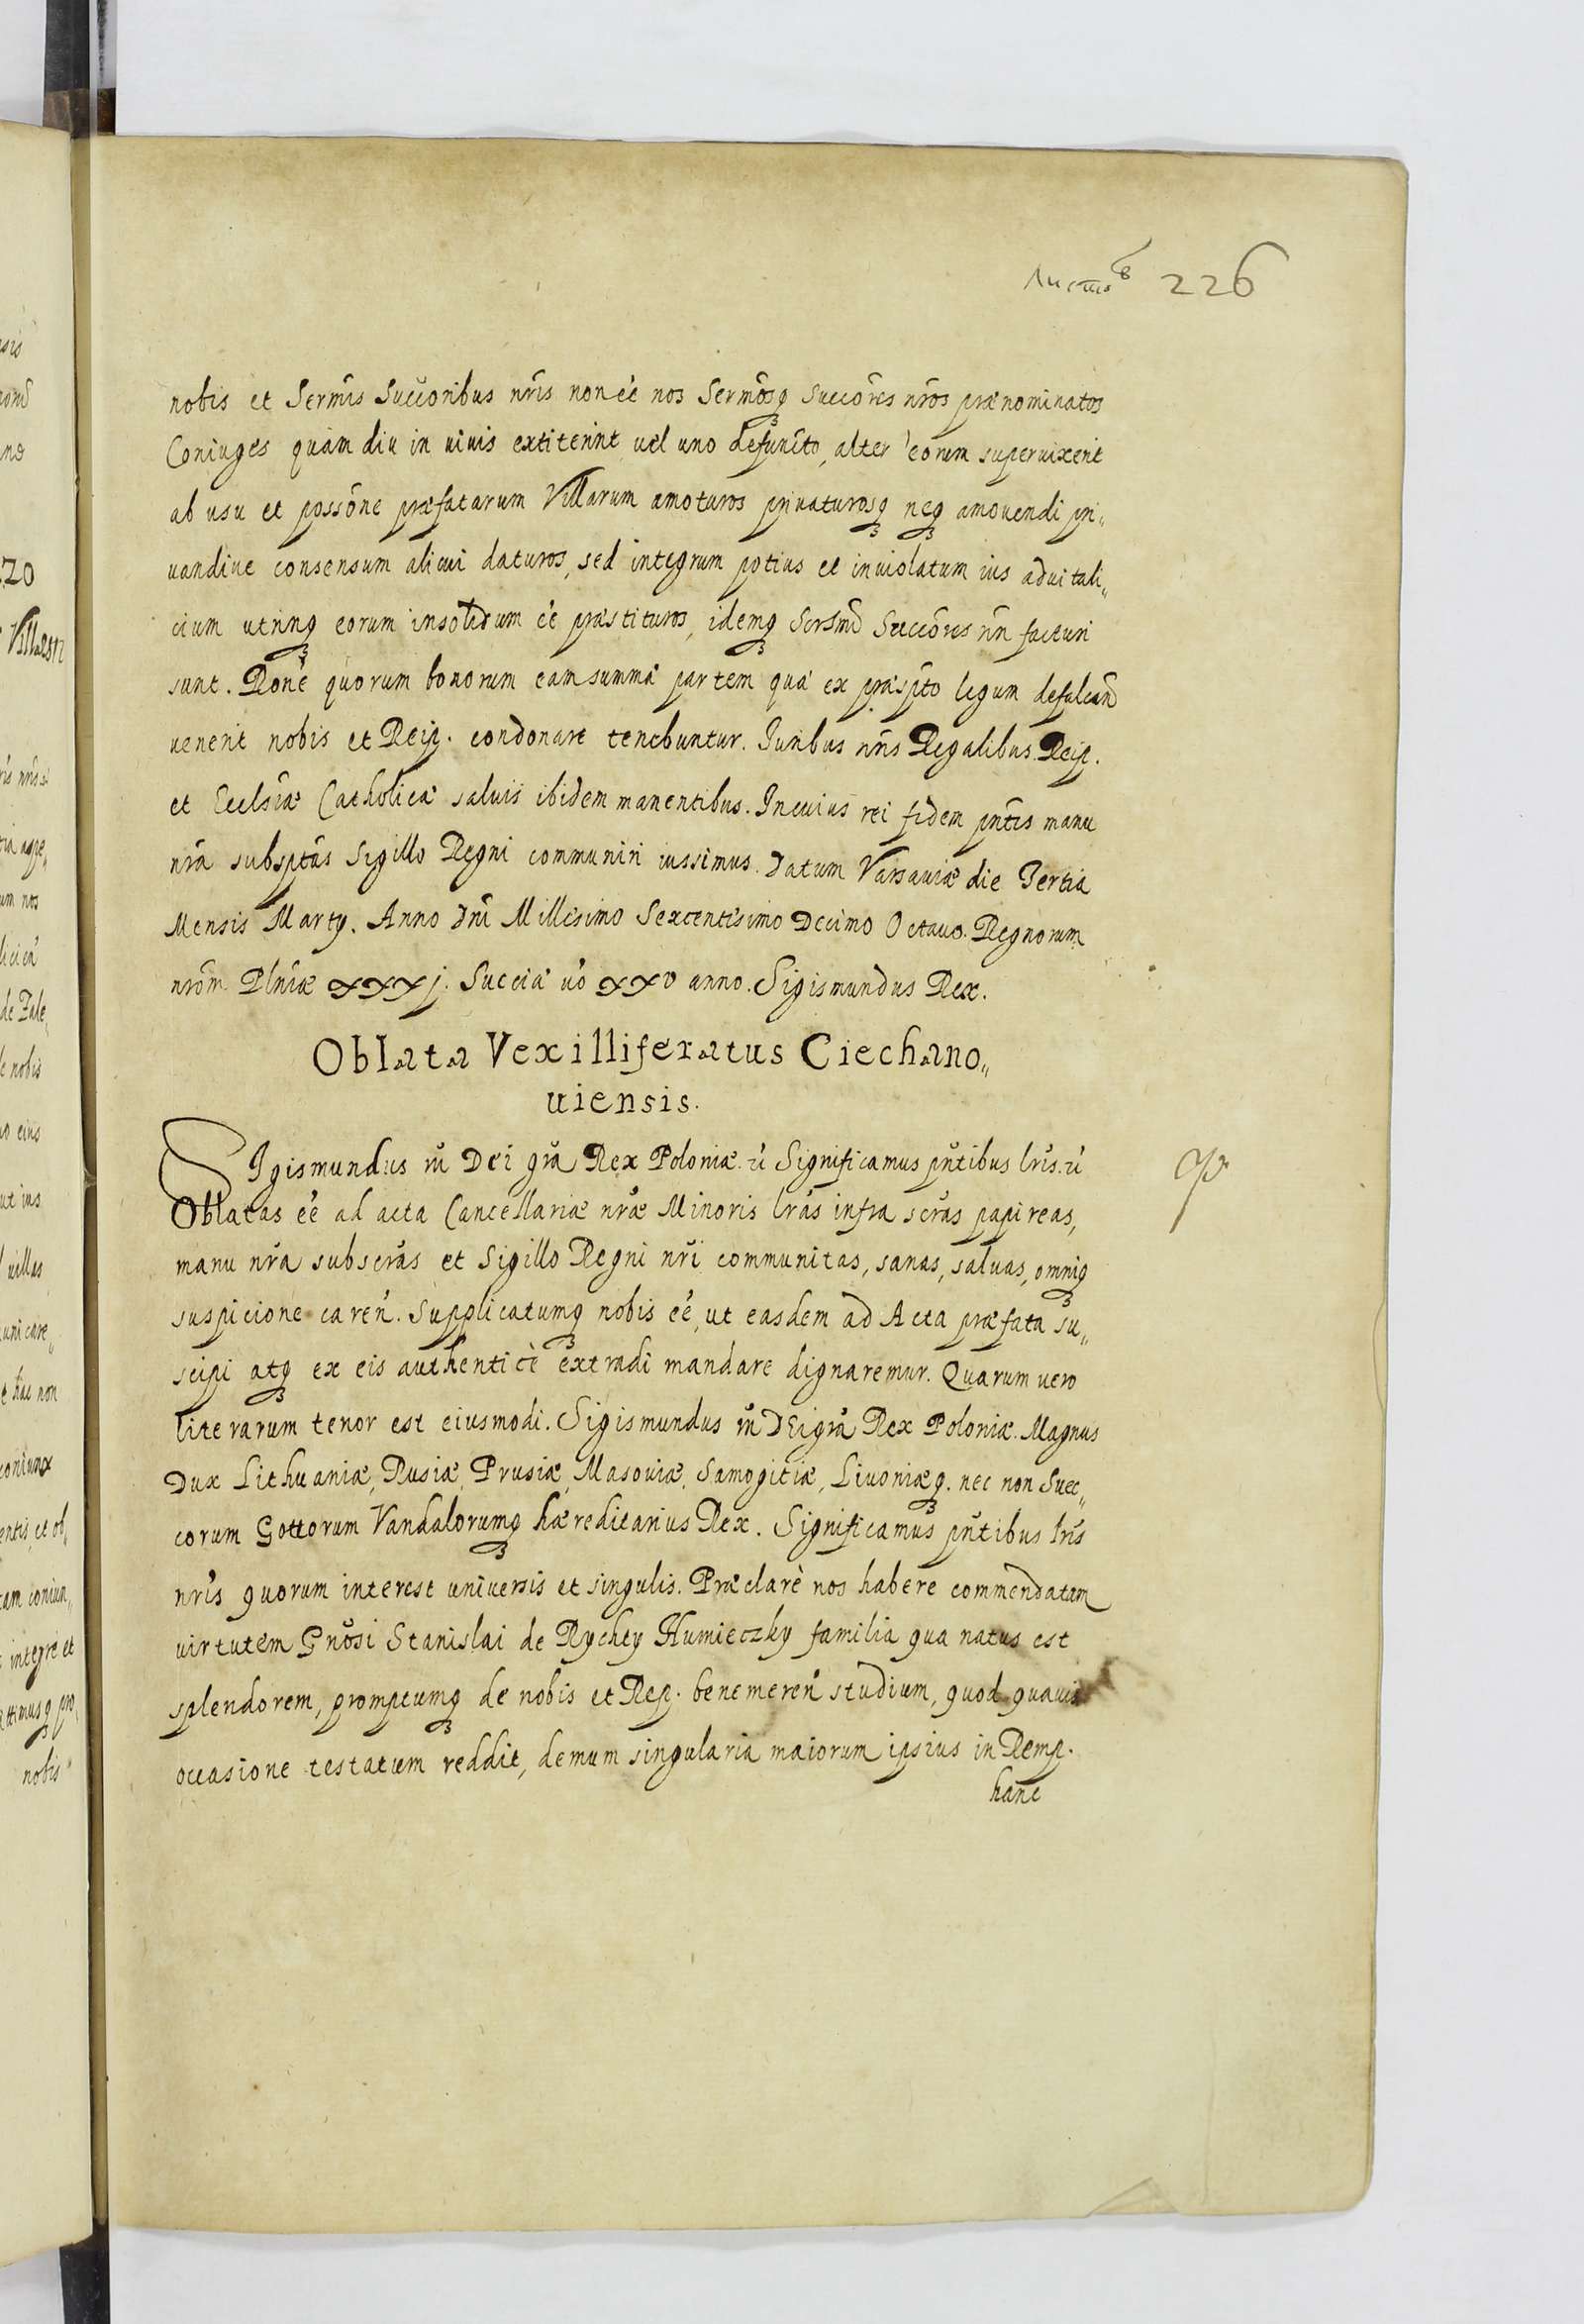 226
nobis et Sermis Succoribus nris non ee nos Sermosq succores nros prænominatos
Coniuges quam diu in uiuis extiterint, uel uno defuncto, alter eorum superuixerit
ab usu et possone præfatarum Villarum amoturos priuaturosq neq amouendi pri„
uandiue consensum alicui daturos, sed integrum potius et inuiolatum ius aduitali„
cium utrinq eorum insolidum ee præstituros, idemq Sersmi Succores nri facturi
sunt. Rone quorum bonorum eam summæ partem quæ ex præspto legum defalcand
uenerit nobis et Reip. condonare tenebuntur. Juribus nris Regalibus Reip.
et Ecclsiæ Catholicæ saluis ibidem manentibus. In cuius rei fidem pntes manu
nra subsptas Sigillo Regni communiri iussimus. Datum Varsauiæ die Tertia
Mensis Marty. Anno Dni Millesimo Sexcentesimo Decimo Octauo. Regnorum
nrom Plniæ XXXj. Sueciæ uo XXV anno. Sigismundus Rex.
Oblata Vexilliferatus Ciechano„
uiensis.
Sigismundus iii Dei gra Rex Poloniæ. Significamus pntibus lris.
Oblatas ee ad acta Cancellariæ nræ Minoris lras infra scras papireas,
manu nra subscras et Sigillo Regni nri communitas, sanas, saluas, omniq
suspicione caren. Supplicatumq nobis ee, ut easdem ad Acta præfata su„
scipi atq ex eis authenticè extradi mandare dignaremur. Quarum uero
literarum tenor est eiusmodi. Sigismundus iii Dei gra Rex Poloniæ. Magnus
Dux Lithuaniæ, Rusiæ, Prusiæ, Masouiæ, Samogitiæ, Liuoniæq. nec non Suec„
corum Gottorum Vandalorumq hæreditarius Rex. Significamus pntibus lris
nris quorum interest uniuersis et singulis. Præclarè nos habere commendatam
uirtutem Gnosi Stanislai de Rychty Humieczky familiæ qua natus est
splendorem, promptumq de nobis et Rep. benemeren studium, quod quauis
occasione testatum reddit, demum singularia maiorum ipsius in Remp.
hanc